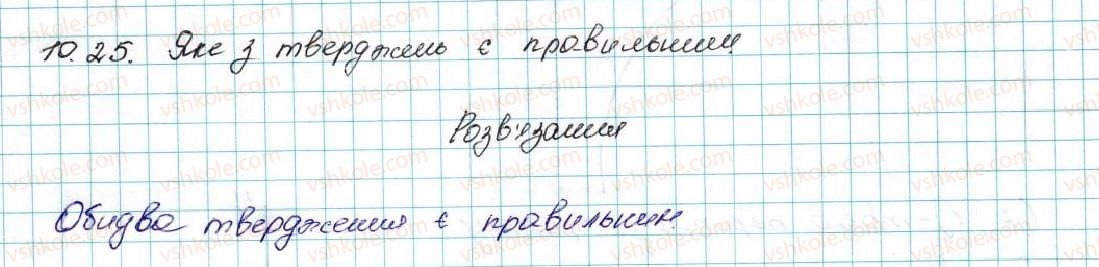 10.25. Яке з тверджень є правильним
Розв'язання
Обидва твердження є правильним.